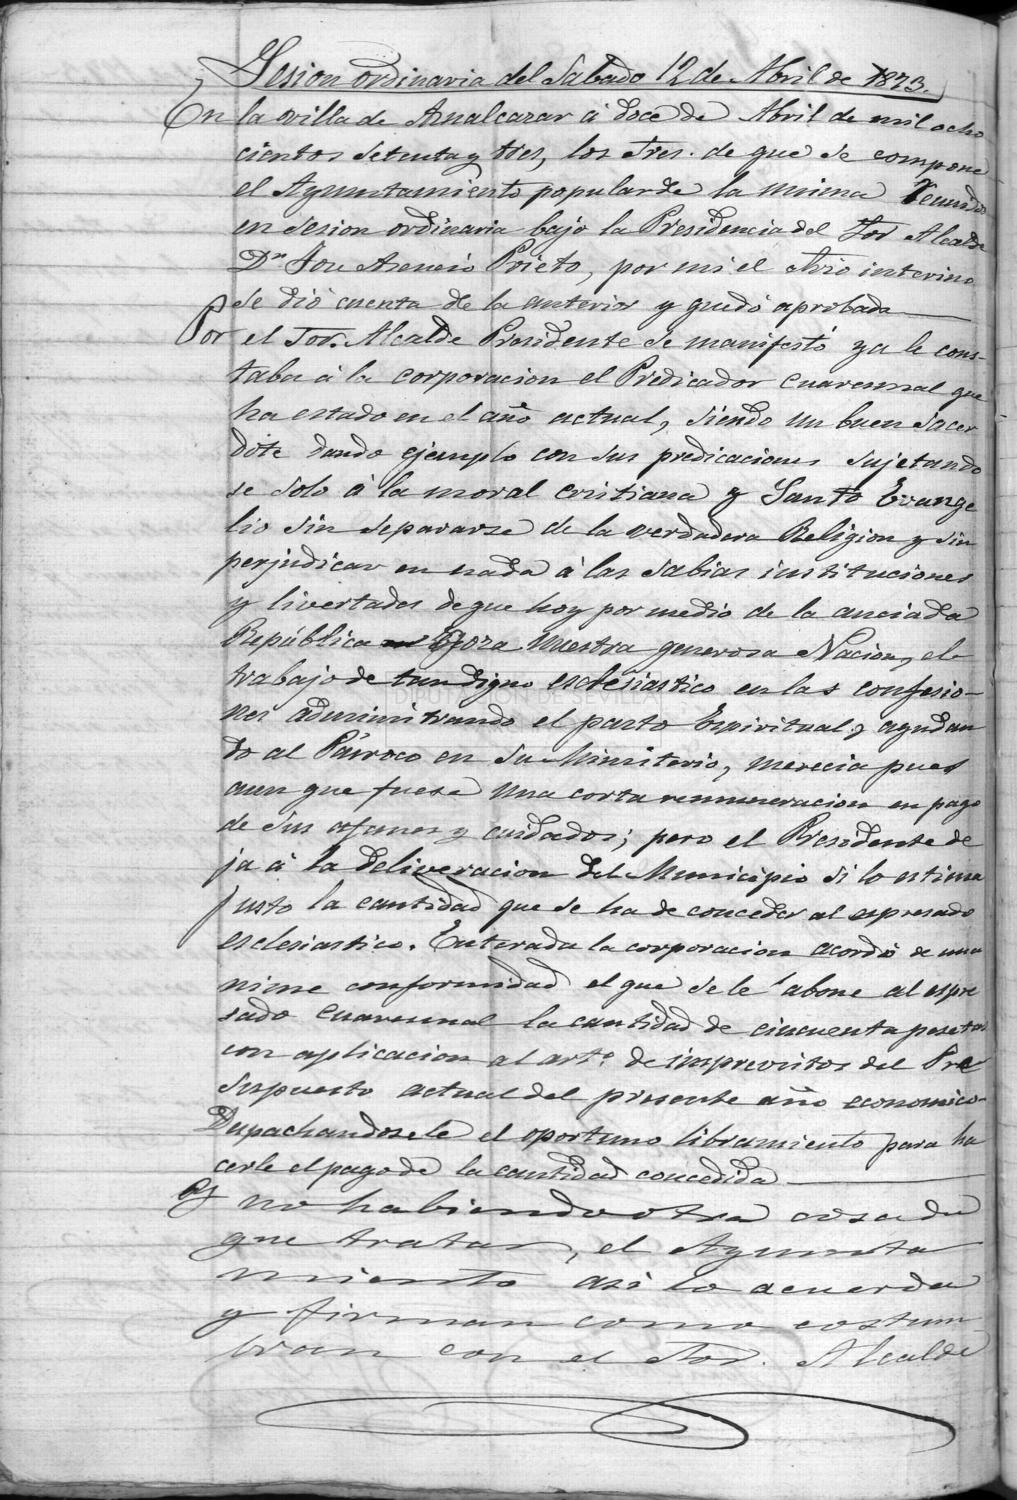 Sesion ordinaria del Sabado 12 de Abril de 1873.
En la villa de Aznalcazar á doce de Abril de mil ocho
cientos setenta y tres, los Sres. de que se compone
el Ayuntamiento popular de la misma reunido
en sesion ordinaria bajo la Presidencia del Sor Alcalde
Dn José Asencio Prieto, por mi el Srio interino
se dió cuenta de la anterior y quedó aprobada
Por el Sor. Alcalde Presidente se manifestó ya le cons-
taba á la corporacion el Predicador cuaresmal que
ha estado en el año actual, siendo un buen sacer
dote dando ejemplo con sus predicaciones sujetando
se solo á la moral cristiana y Santo Evange
lio sin separarse de la verdadera Religion y sin
perjudicar en nada á las sabias instituciones
y livertades de que hoy por medio de la anciada
República goza nuestra generosa Nacion, el
trabajo de tan digno esclesiastico en las confesio-
nes administrando el pasto Espiritual y ayudan
do al Párroco en su Ministerio, merecia pues
aun que fuese una corta remuneracion en pago
de sus afanes y cuidados; pero el Presidente de
ja á la deliveracion del Municipio si lo estima
justo la cantidad que se ha de conceder al espresado
esclesiastico. Enterada la corporacion acordó de una
nime conformidad el que se le abone al espre
sado cuaresmal la cantidad de cincuenta pesetas
con aplicacion al arto. de imprevistos del Pre
supuesto actual del presente año economico
Dupachandosele el oportuno libramiento para ha
cerle el pago de la cantidad concedida
Y no habiendo otra cosa de
que tratar, el Ayunta
miento asi lo acuerda
y firman como costum
bran con el Sor. Alcalde
DIPUTACIÓN DE SEVILLA